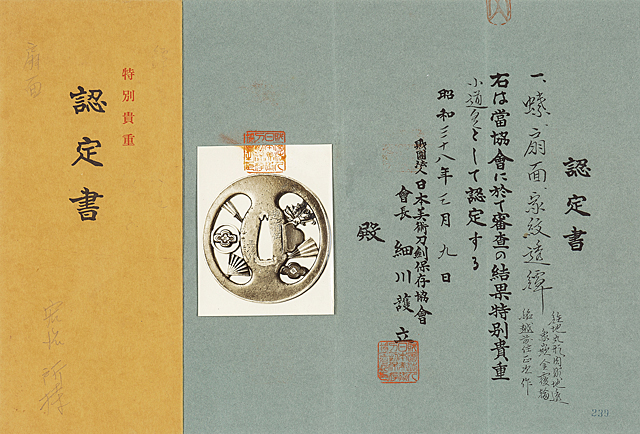 認定書
一、 扇面、家紋透鐔
鉄地丸形肉彫地透
象嵌金覆輪
銘越前住正次作
右は當協會に於て審査の結果特別貴重
小道具として認定する
昭和三十八年三月九日
財團法人日本美術刀剣保存協會
會長 細川護立
殿
239
特別貴重
認定書
扇面
所持